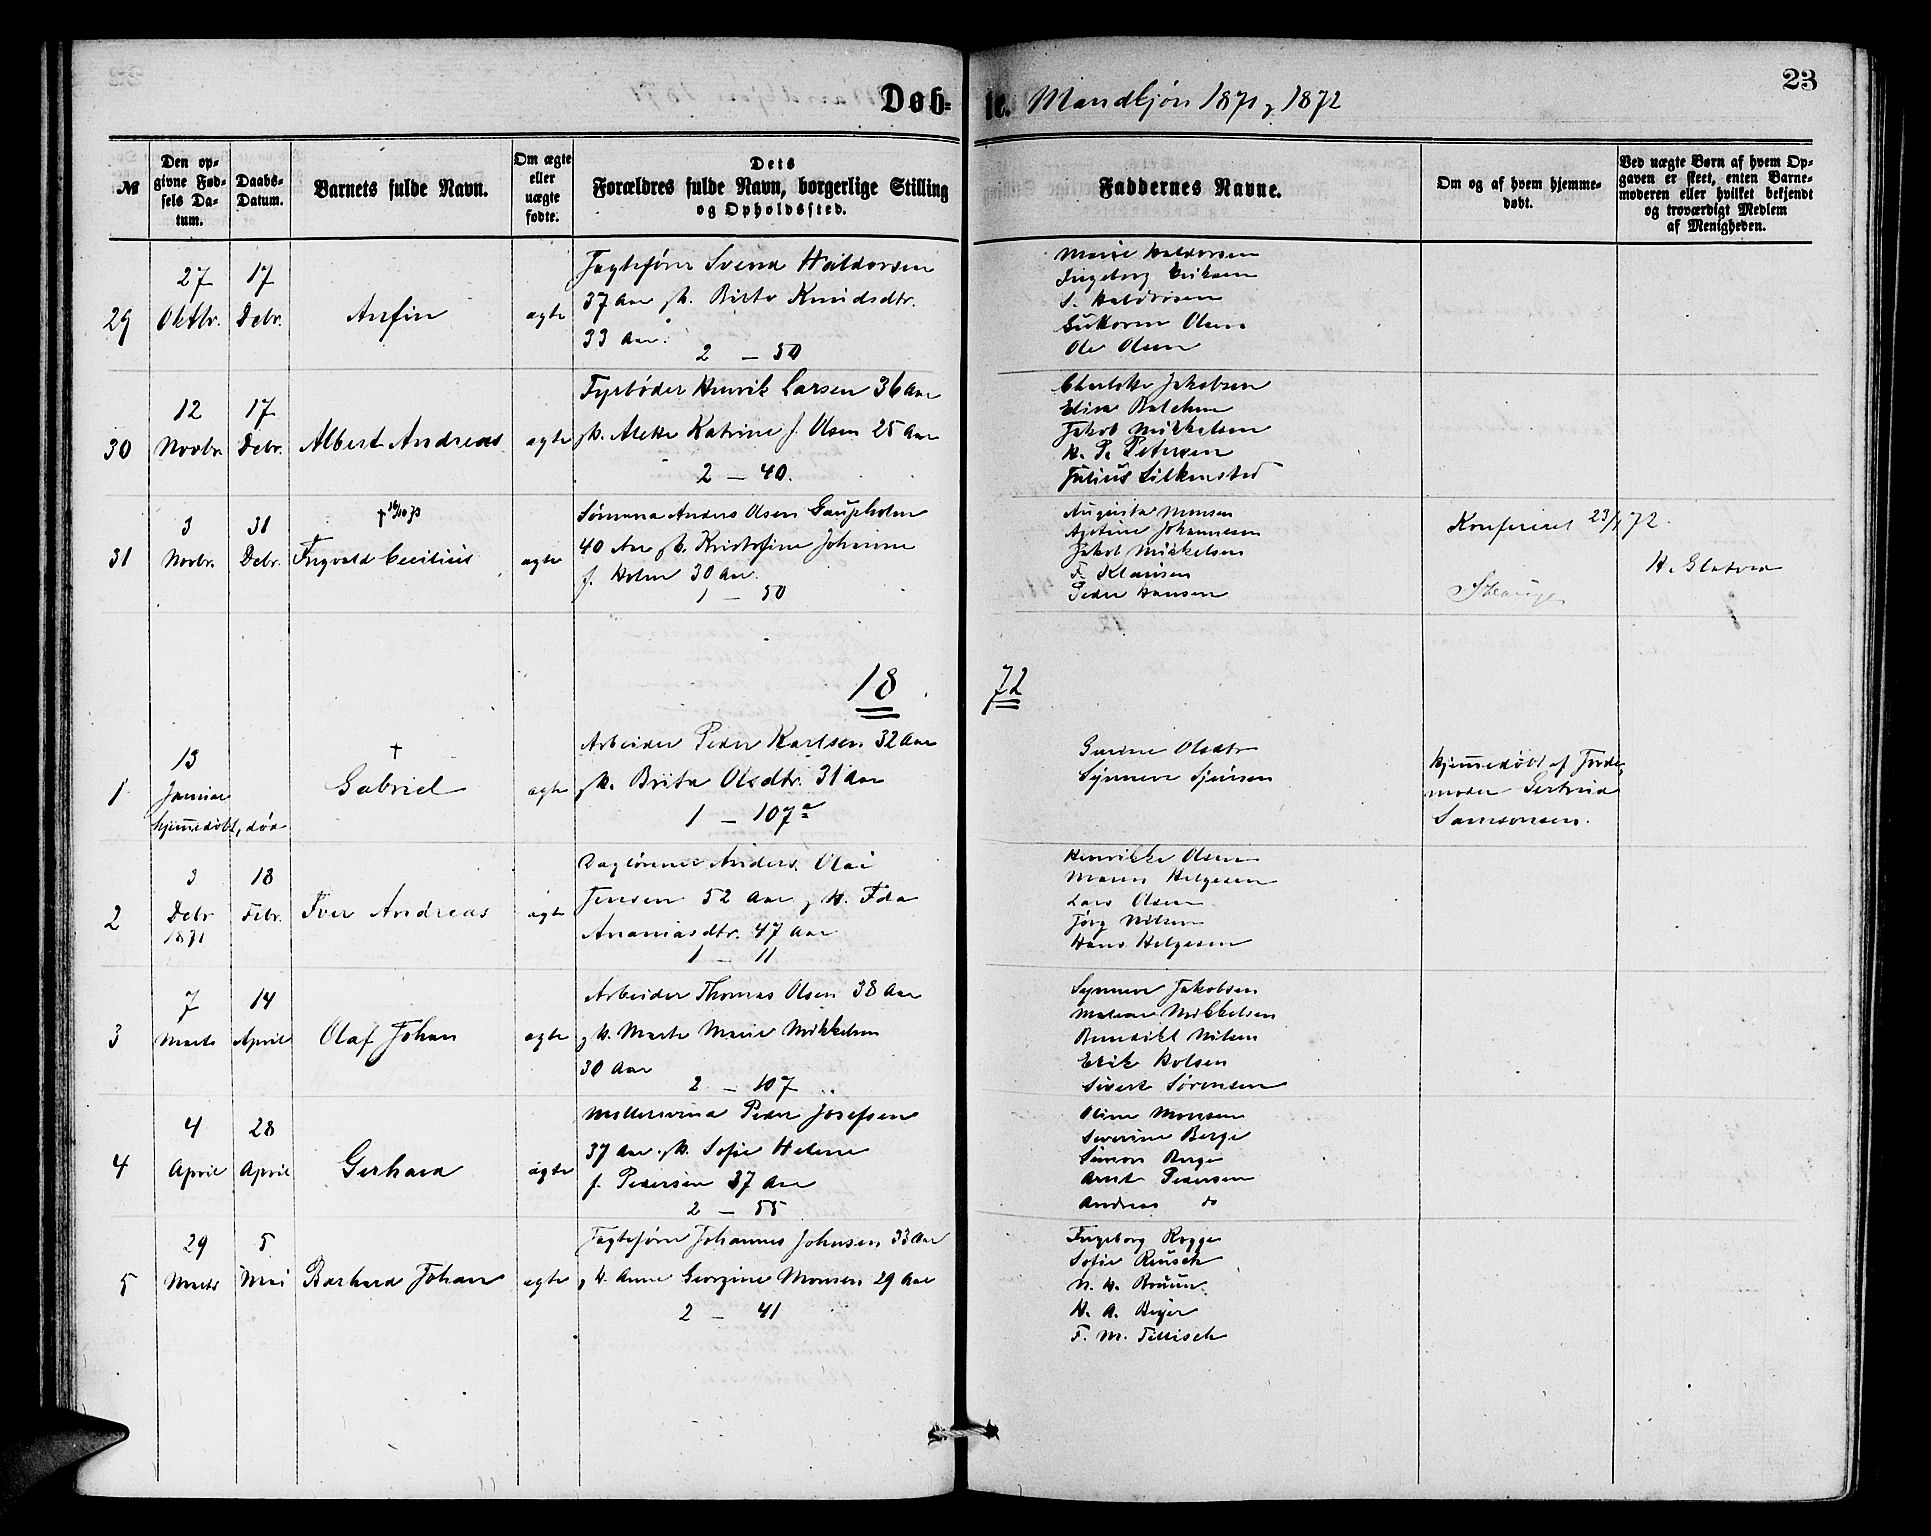 Døb-
te. Mandkjön 1871 & 1872
23
№
Den op-
givne Fød-
sels Da-
tum.
Daabs-
Datum.
Barnets fulde Navn.
Om ægte
eller
uægte
fødte.
Dets
Forældres fulde Navn, borgerlige Stilling
og Opholdssted.
Faddernes Navne.
Om og af hvem hjemme-
døbt.
Ved uægte Børn af hvem Op-
gaven er skeet, enten Barne-
moderen eller hvilket bekjendt
og troværdigt Medlem
af Menigheden.
29
27 Oktbr.
17 Debr.
Anfin
ægte
Jagtefører Svend Haldorsen
37 Aar & H. Birte Knudsdtr.
33 Aar.
2 - 50
Marie Haldorsen
Ingeborg Eriksen
S. Haldorsen
Guttorm Olsen
Ole Olsen
30
12 Novbr.
17 Debr.
Albert Andreas
ægte
Fyrbøder Henrik Larsen 36 Aar
& H. Alette Katrine f. Olsen 25 Aar
2 - 40.
Charlotte Jakobsen
Elisa
Jakob Mikkelsen
H. P. Petersen
Julius Lilkensted
31
3 Novbr.
31 Debr.
Ingvald Cecilius
ægte
Sömand Anders Olsen Gaupholm
40 Aar & H. Kristofine Johanne
f. Holm 30 Aar.
1 - 50
Augusta Monsen
Johannesen
Jakob Mikkelsen
F. Klausen
Peder Hansen
Konfereret 23/1 72.
18 72
1
13 Januar
hjemmedöbt, död
†
Gabriel
ægte
Arbeider Peder Karlsen 32 Aar
& H. Brita Olsdtr. 31 Aar
1 - 107 a
Gurine Olsdtr
Synneve
hjemmedöbt af Jorde-
moder Gertrud
Samsonsen.
2
3 Debr 1871
18 Febr.
Iver Andreas
ægte
Daglönner Anders Olai
Jensen 52 Aar & H. Ida
Ananiasdtr. 47 Aar
1 - 11
Henrikke Olsen
Maren Helgesen
Lars Olsen
Jörg Nilsen
Hans Helgesen
3
7 Marts
14 April
Olaf Johan
ægte
Arbeider Thomas Olsen 38 Aar
& H. Marte Marie Mikkelsen
30 Aar
2 - 107
Synneve Jakobsen
Malene Mikkelsen
Benedikt Nilsen
Erik Holsen
Sivert Sørensen
4
4 April
28 April
Gerhard
ægte
Möllersvend Peder Josefsen
37 Aar & H. Sofie Helene
f. Pedersen 37 Aar
2 - 55
Oline Monsen
Severine Berge
Simon Berge
Arnt Pedersen
Andreas do
5
29 Marts
5 Mai
Barhard Johan
ægte
Jagtefører Johannes Johnsen 33 Aar
& H. Anne Georgine Monsen 29 Aar
2 - 41
Ingeborg Rogge
Sofie Reusch
N. H. Bruun
H. A. Beyer
F. M. Tillisch